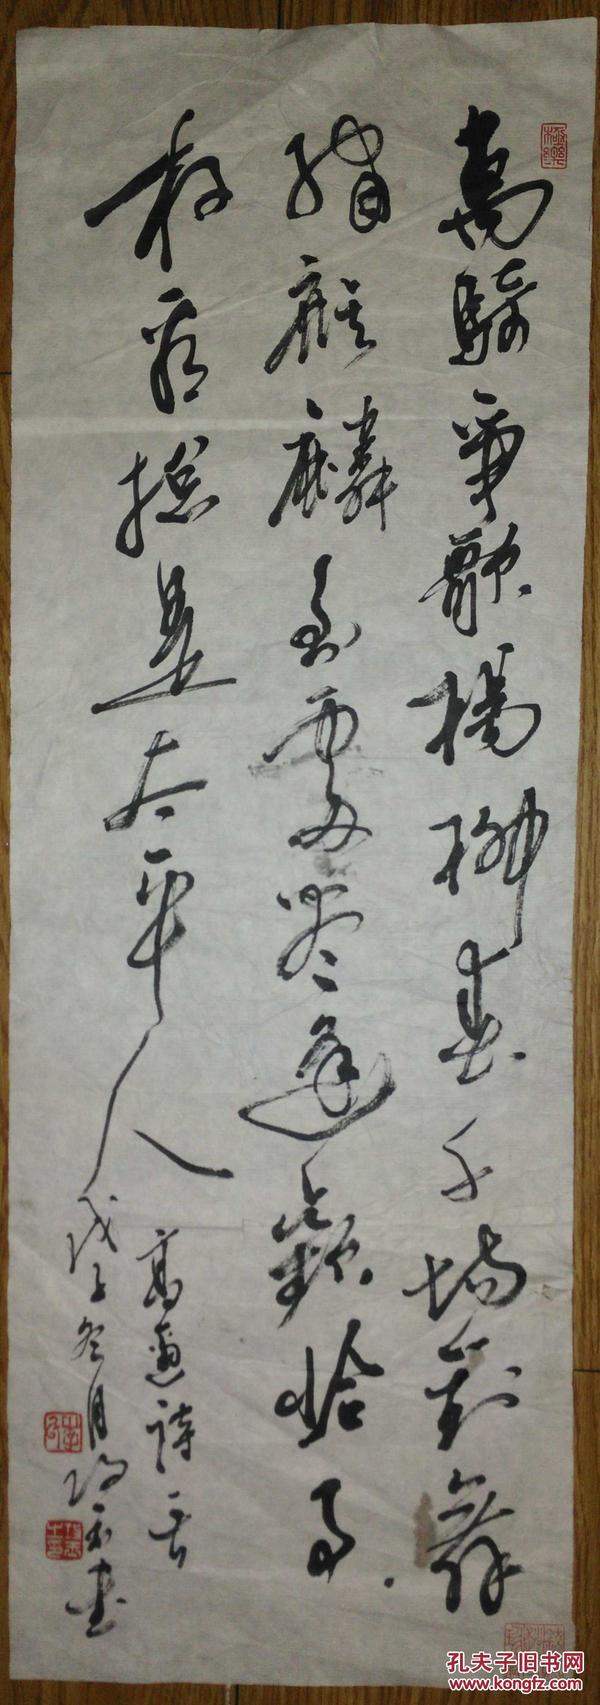 萬騎爭歌楊柳春千場對舞
繡麒麟到處盡逢歡洽事
相看總是太平人
高適詩一首
戊子冬月 書
孔夫子旧书网
www.kongfz.com